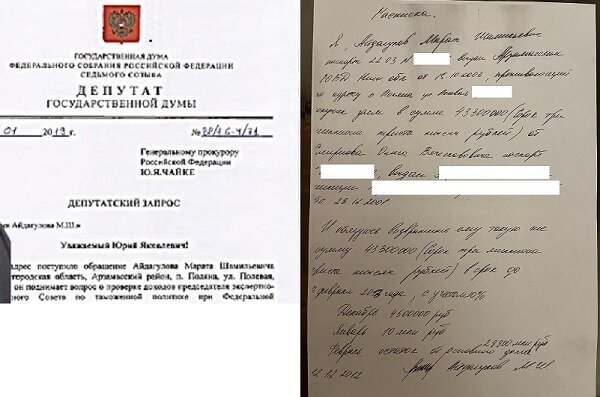 ГОСУДАРСТВЕННАЯ ДУМА
ФЕДЕРАЛЬНОГО СОБРАНИЯ РОССИЙСКОЙ ФЕДЕРАЦИИ
СЕДЬМОГО СОЗЫВА
ДЕПУТАТ
ГОСУДАРСТВЕННОЙ ДУМЫ
01 2019 г.
Генеральному прокурору
Российской Федерации
Ю.Я.ЧАЙКЕ
ДЕПУТАТСКИЙ ЗАПРОС
ия Айдагулова М.Ш.»
Уважаемый Юрий Яковлевич!
адрес поступило обращение Айдагулова Марата Шамильевича
городская область, Арзамасский район, п. Поляна, ул. Полевая,
он поднимает вопрос о проверке доходов председателя экспертно-
Совета по таможенной политике при Федеральной
Расписка.
Я, Айдагулов Марат Шамильевич
паспорт 22 03 N выдан Арзамасским
проживающий
по адресу
займ в сумме 43300000 (Сорок три
миллиона триста тысяч рублей) от
Олега Вячеславовича паспорт
выдан
23.12.2001
И обязуюсь возвратить ему такую же
сумму 43300000 (Сорок три миллиона
триста тысяч рублей) в срок до
февраля года, с учетом
Декабрь 4500000 руб
Январь 10 млн руб
Февраль остаток от основного
12.12.2012 Айдагулов М.Ш.